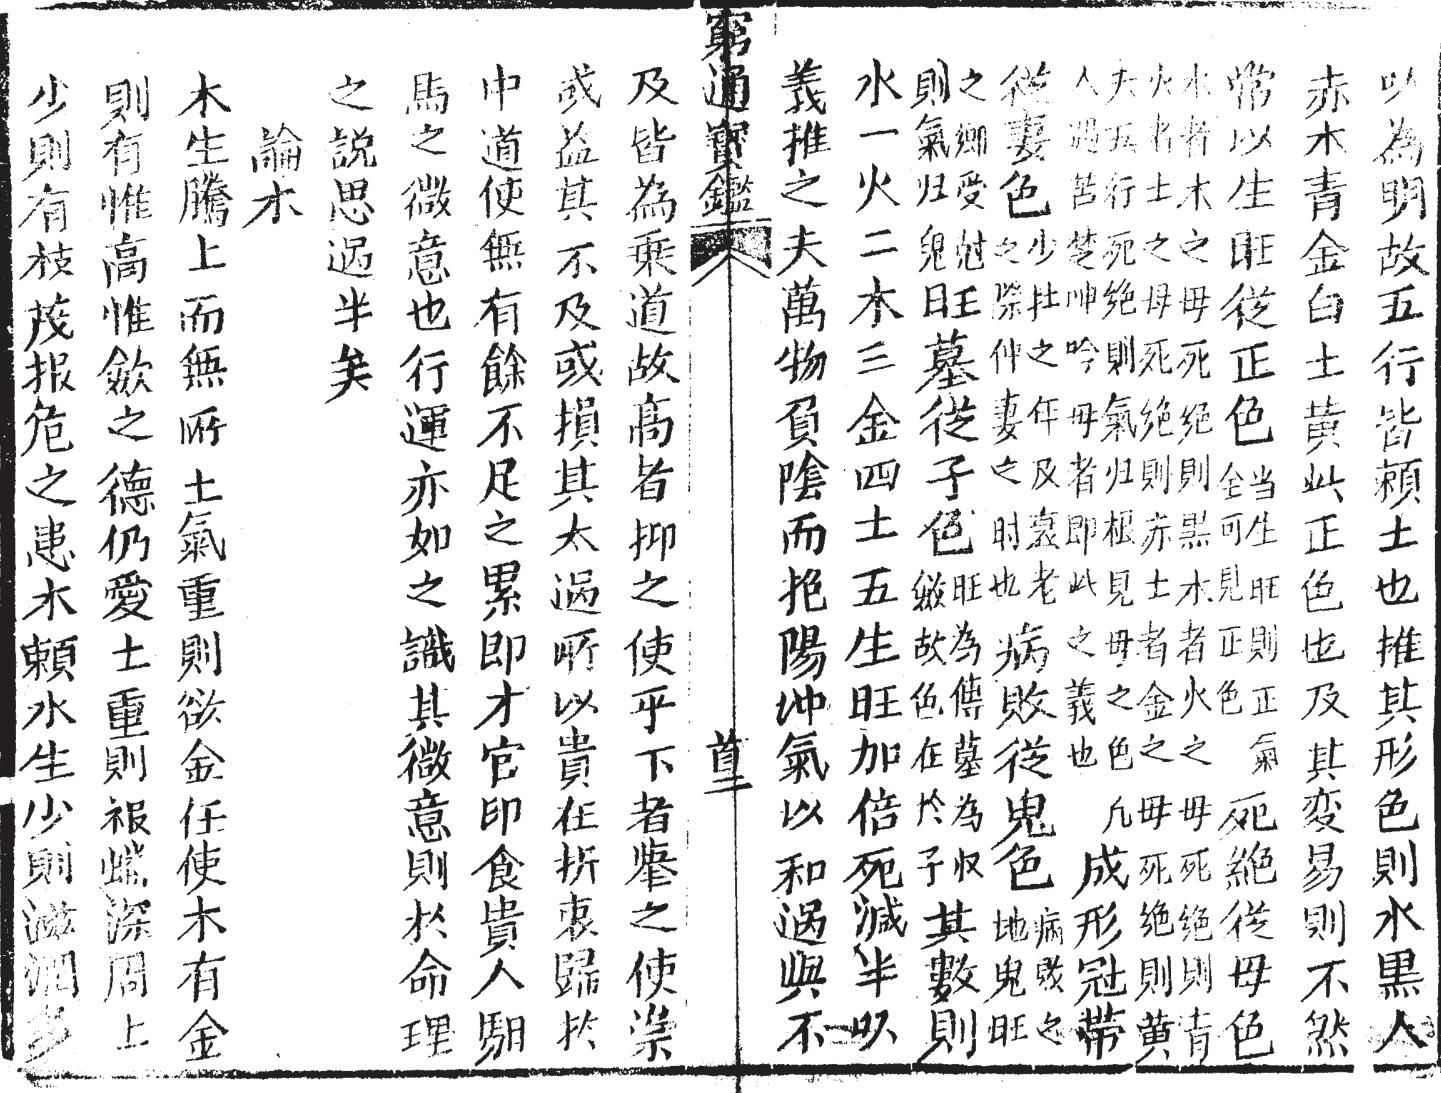 以為明故五行皆頼土也推其形色則水黒人
赤木青金白土黄此正色也及其変易則不然
常以生旺从正色当生旺則正氣全可見正色死絶従母色
水者木之母死絶則黒木者火之母死絶則青
火者土之母死絶則赤土者金之母死絶則黄
夫五行死絶則氣归根見母之色凡
人遇苦楚呻吟母者即此之義也成形冠帯
従妻色少壮之年及衰老之際仲妻之时也病敗従鬼色病敗之地鬼旺
之郷受尅則氣归鬼旺墓従子色旺為傳墓為收歛故色在於子其數則
水一火二木三金四土五生旺加倍死減半以
義推之夫萬物負陰而抱陽冲氣以和過與不
窮通寳鑑
首二
及皆為乗道故高者抑之使乎下者舉之使崇
或益其不及或損其太過所以貴在折衷歸於
中道使無有餘不足之累即才官印食貴人駟
馬之微意也行運亦如之識其微意則於命理
之説思過半矣
論木
木生騰上而無所土氣重則欲金任使木有金
則有惟高惟歛之德仍愛土重則根蟠深周上
少則有枝茂报危之患木頼水生少則滋潤多